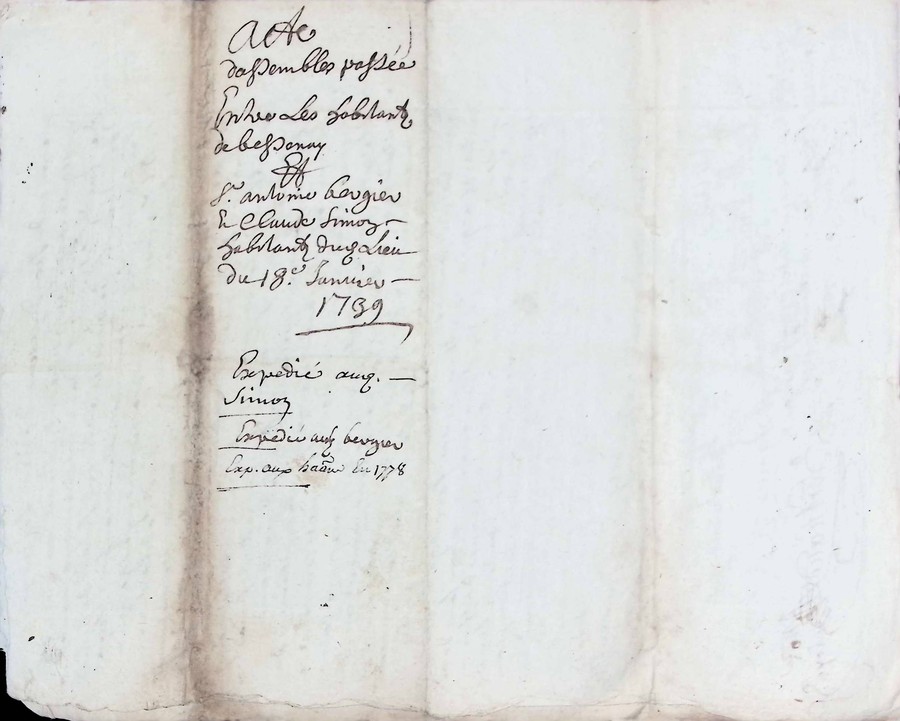 Acte
dassemblee passée
Entre Les habitants
de bessenay
Et
Sr. antoine bergier
Et Claude Simon
habitants dud Lieu
Du 18e. Janvier
1739
Expedié aud.
Simon
Expedié aud bergier
Exp. aux En 1778